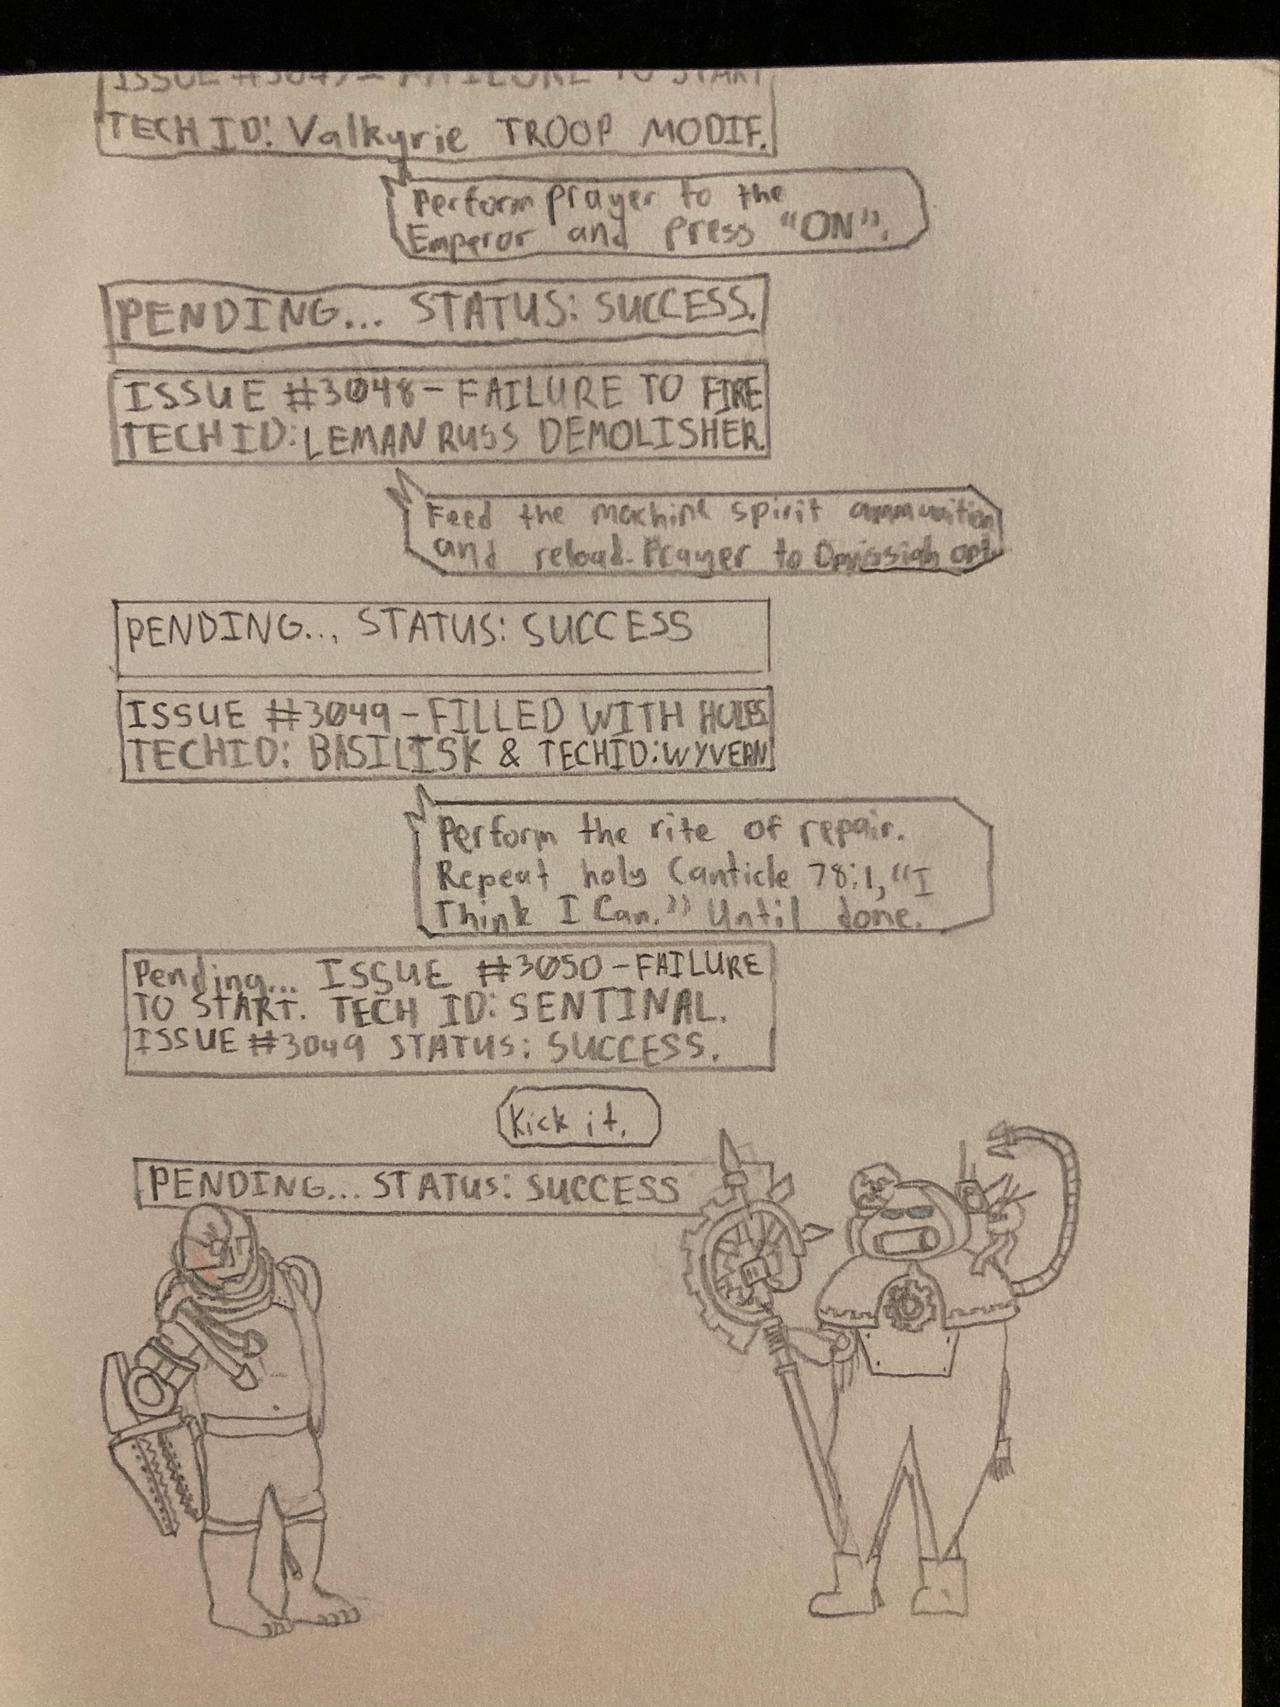 ISSUE #3047 - FAILURE TO START
TECH ID: Valkyrie TROOP MODIF.
Perform prayer to the
Emperor and press "ON".
PENDING... STATUS: SUCCESS.
ISSUE #3048 - FAILURE TO FIRE
TECH ID: LEMAN RUSS DEMOLISHER.
Feed the machine spirit ammunition
and reload. Prayer to Omnissiah opt.
PENDING... STATUS: SUCCESS
ISSUE #3049 - FILLED WITH HOLES
TECHID: BASILISK & TECHID: WYVERN
Perform the rite of repair.
Repeat holy Canticle 78:1, "I
Think I Can." Until done.
Pending... ISSUE #3050 - FAILURE
TO START. TECH ID: SENTINAL.
ISSUE #3049 STATUS: SUCCESS.
Kick it.
PENDING... STATUS: SUCCESS